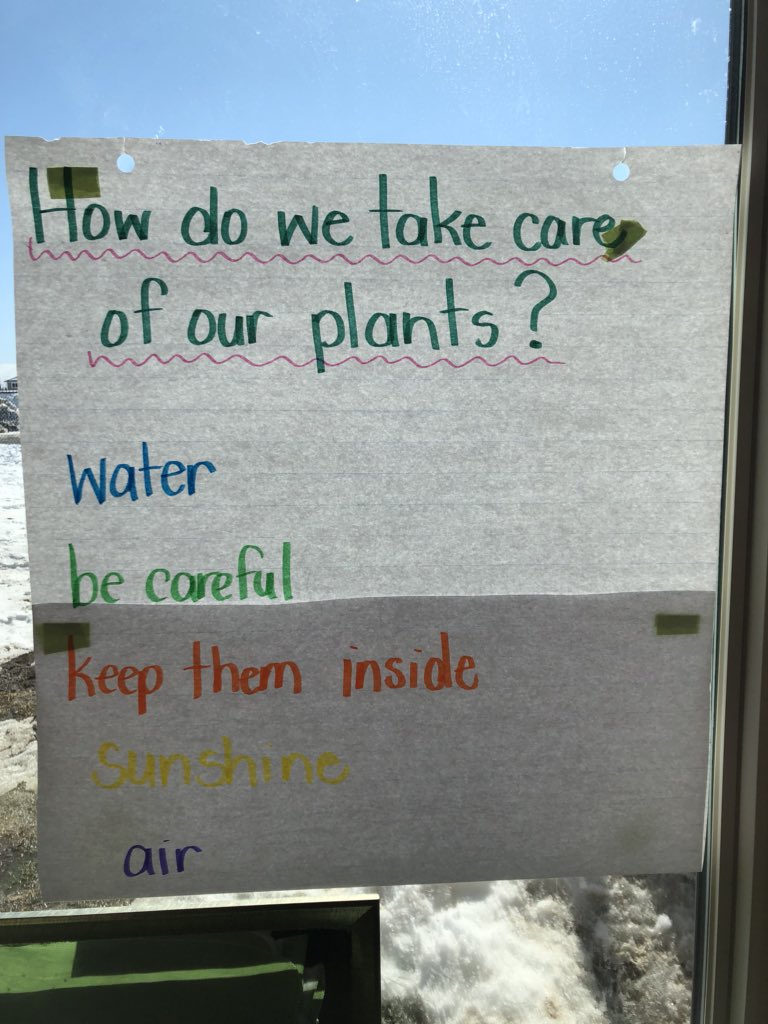 How do we take care
of our plants?
Water
be careful
keep them inside
sunshine
air